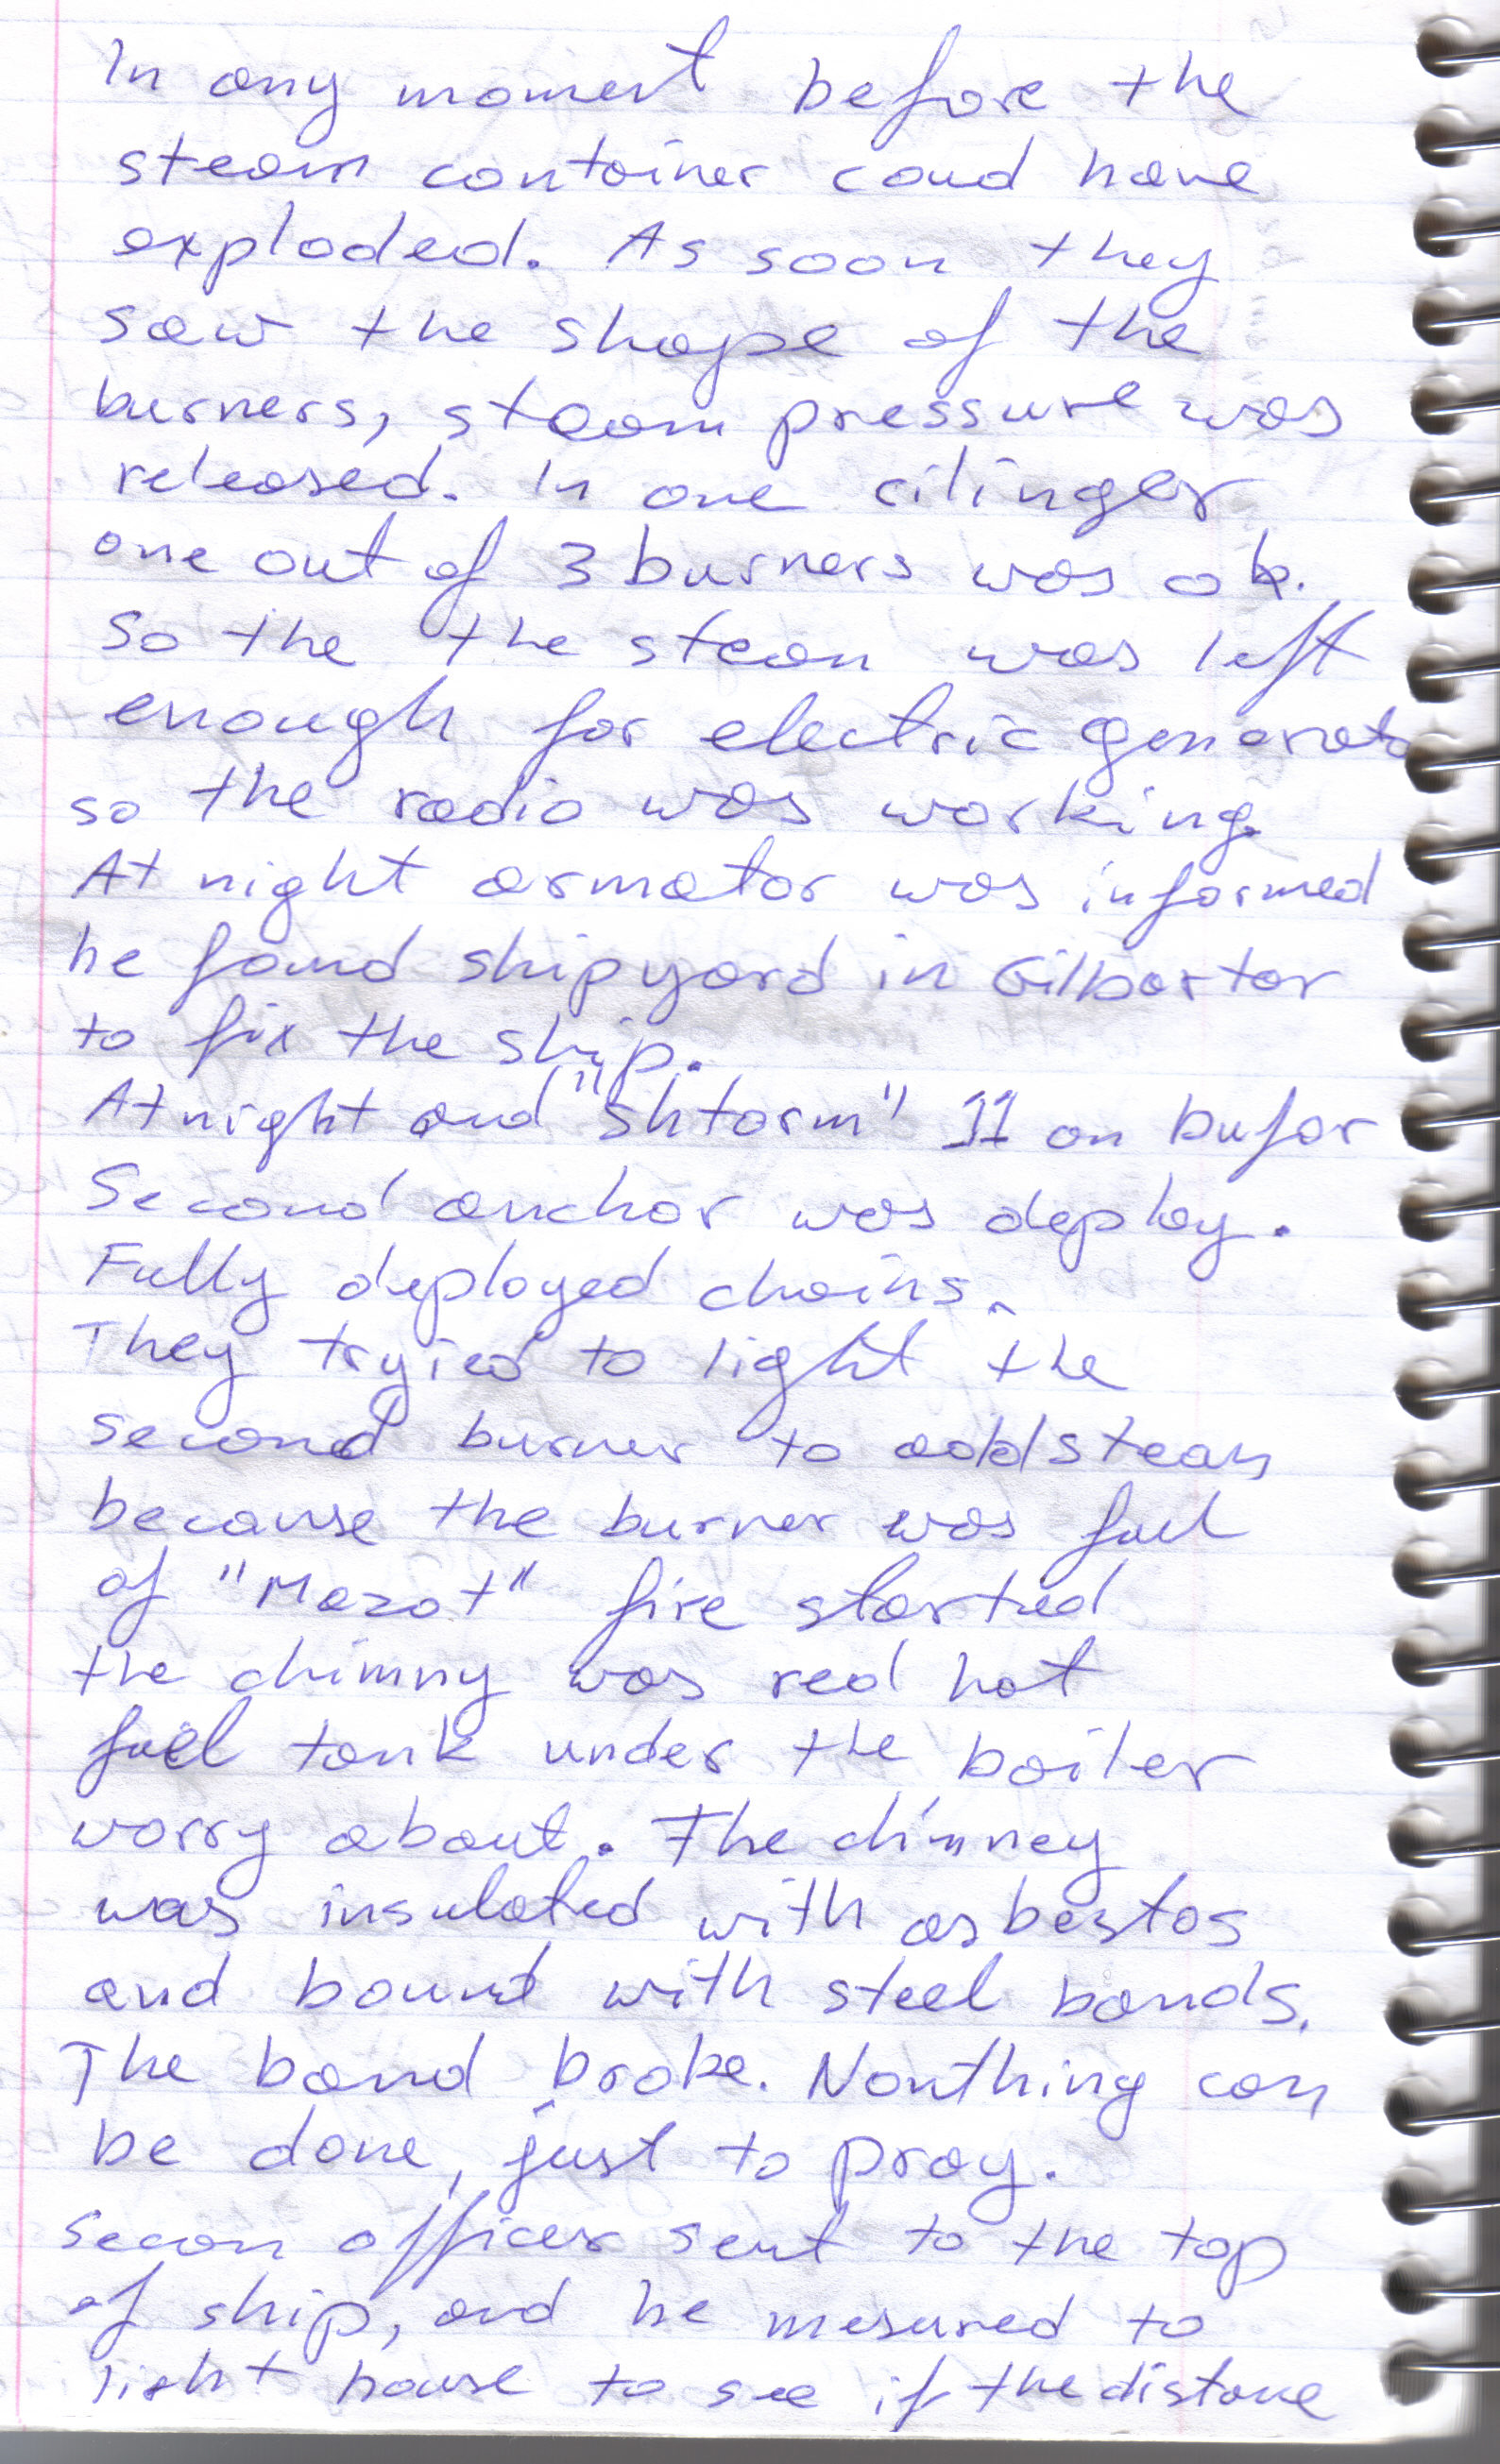 In any moment before the
steam container coud have
exploded. As soon they
saw the shape of the
burners, steam pressure was
released. In one cilinger
one out of 3 burners was ok.
So the the stean was left
enough for electric generato
so the radio was working.
At night armator was informed
he found shipyard in Gilbartar
to fix the ship.
At night and "Shtorm" 11 on bufor
Second anchor was deploy.
Fully deployed chains.
They tryied to light the
second burner to add steam
because the burner was full
of "Mazot" fire started
the chimny was red hot
fuel tank under the boiler
worry about. The chimney
was insulated with asbestos
and bound with steel bands.
The band broke. Nonthing can
be done, just to pray.
Secon officer sent to the top
of ship, and he mesured to
light house to see if the distance